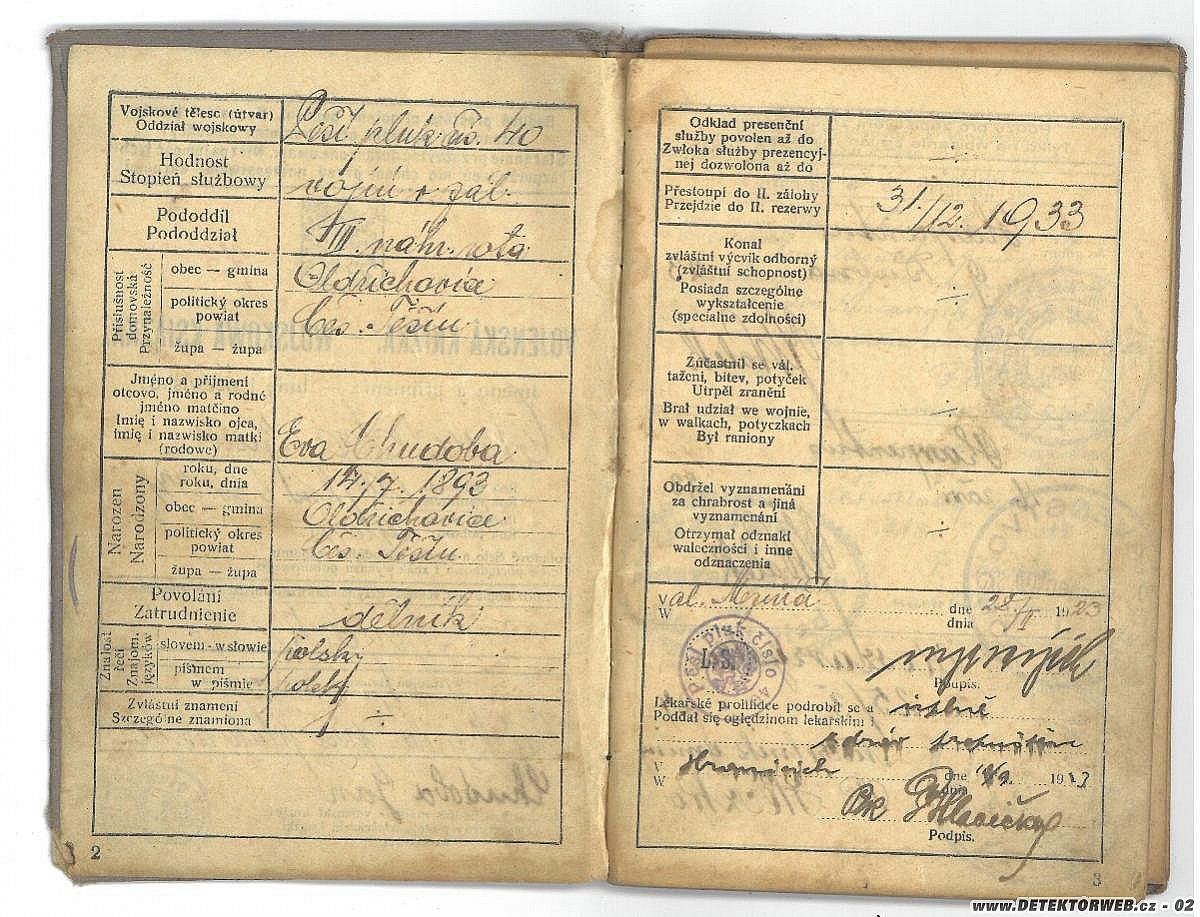 Vojskové těleso (útvar)
Oddział wojskowy
Pěší pluk čís. 40
Hodnost
Stopień służbowy
vojín v zál.
Pododdíl
Pododdział
III. náhr. rota
Příslušnost domovská
Przynależność
obec — gmina
Oldřichovice
politický okres
powiat
Čes. Těšín
župa — župa
Jméno a příjmení
otcovo, jméno a rodné
jméno matčino
Imię i nazwisko ojca,
imię i nazwisko matki
(rodowe)
Eva Chudoba
Narozen
Narodzony
roku, dne
roku, dnia
17. 7. 1893
obec — gmina
Oldřichovice
politický okres
powiat
Čes. Těšín
župa — župa
Povolání
Zatrudnienie
dělník
Znalost řečí
Znajom. języków
slovem - w słowie
polsky
písmem
w piśmie
polsky
Zvláštní znamení
Szczególne znamiona
÷
2
Odklad presenční
služby povolen až do
Zwłoka służby prezencyj-
nej dozwolona aż do
÷
Přestoupí do II. zálohy
Przejdzie do II. rezerwy
31./12. 1933
Konal
zvláštní výcvik odborný
(zvláštní schopnost)
Posiada szczególne
wykształcenie
(specialne zdolności)
÷
Zúčastnil se vál.
tažení, bitev, potyček
Utrpěl zranění
Brał udział we wojnie,
w walkach, potyczkach
Był raniony
÷
Obdržel vyznamenání
za chrabrost a jiná
vyznamenání
Otrzymał odznaki
waleczności i inne
odznaczenia
÷
V
W
dne
dnia
28/ 1923
L. S.
Pěší pluk číslo 4
Podpis.
Lékařské prohlídce podrobil se a
Poddał się oględzinom lekarskim i
V
W
dne
dnia
19
Podpis.
3
www.DETEKTORWEB.cz - 02